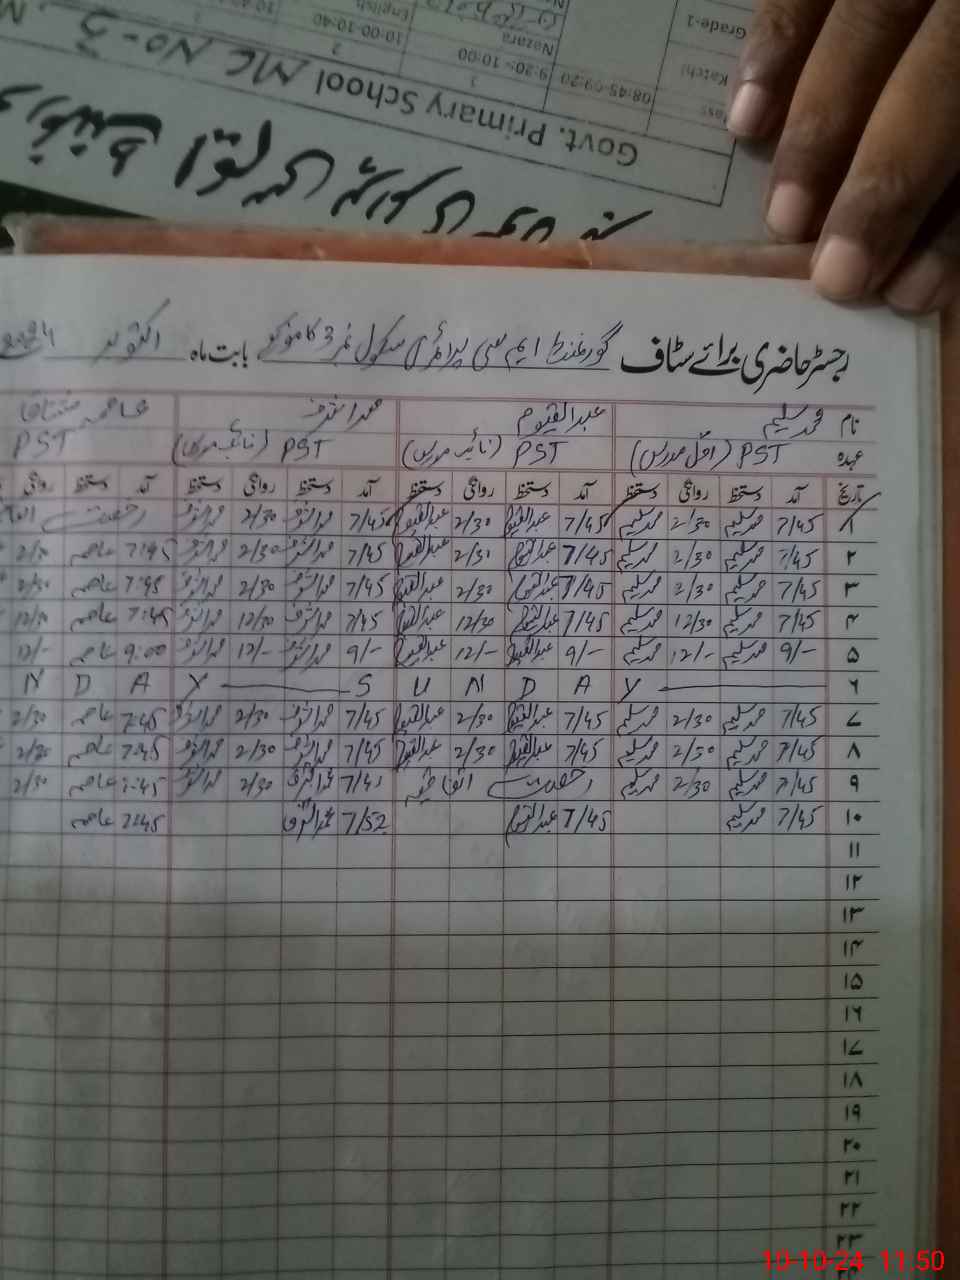 Govt. Primary School MC No-3
08:45-09:20 9:20-10:00 10:00-10:40
Katchi Nazara English
Grade-1
رجسٹر حاضری برائے سٹاف گورنمنٹ ایم سی پرائمری سکول نمبر 3 کامونکے بابت ماہ اکتوبر
نام محمد سلیم عبدالقیوم محمد اشرف عاصم مشتاق
عہدہ PST (اول مدرس) PST (نائب مدرس) PST (نائب مدرس) PST
تاریخ آمد دستخط روانگی دستخط آمد دستخط روانگی دستخط آمد دستخط روانگی دستخط آمد دستخط روانگی
۱ 7/45 محمد سلیم 2/30 محمد سلیم 7/45 عبدالقیوم 2/30 عبدالقیوم 7/45 محمد اشرف 2/30 محمد اشرف رخصت
۲ 7/45 محمد سلیم 2/30 محمد سلیم 7/45 عبدالقیوم 2/30 عبدالقیوم 7/45 محمد اشرف 2/30 محمد اشرف 7:45 عاصم 2/30
۳ 7/45 محمد سلیم 2/30 محمد سلیم 7/45 عبدالقیوم 2/30 عبدالقیوم 7/45 محمد اشرف 2/30 محمد اشرف 7:45 عاصم 2/30
۴ 7/45 محمد سلیم 12/30 محمد سلیم 7/45 عبدالقیوم 12/30 عبدالقیوم 7/45 محمد اشرف 12/30 محمد اشرف 7:45 عاصم 12/30
۵ 9/- محمد سلیم 12/- محمد سلیم 9/- عبدالقیوم 12/- عبدالقیوم 9/- محمد اشرف 12/- محمد اشرف 9:00 عاصم 12/-
۶ Y A D N U S Y A D N
۷ 7/45 محمد سلیم 2/30 محمد سلیم 7/45 عبدالقیوم 2/30 عبدالقیوم 7/45 محمد اشرف 2/30 محمد اشرف 7:45 عاصم 2/30
۸ 7/45 محمد سلیم 2/30 محمد سلیم 7/45 عبدالقیوم 2/30 عبدالقیوم 7/45 محمد اشرف 2/30 محمد اشرف 7:45 عاصم 2/30
۹ 7/45 محمد سلیم 2/30 محمد سلیم رخصت اتفاقیہ 7/45 محمد اشرف 2/30 محمد اشرف 7:45 عاصم 2/30
۱۰ 7/45 محمد سلیم 7/45 عبدالقیوم 7/52 محمد اشرف 7:45 عاصم
۱۱
۱۲
۱۳
۱۴
۱۵
۱۶
۱۷
۱۸
۱۹
۲۰
۲۱
۲۲
۲۳
10-10-24 11:50